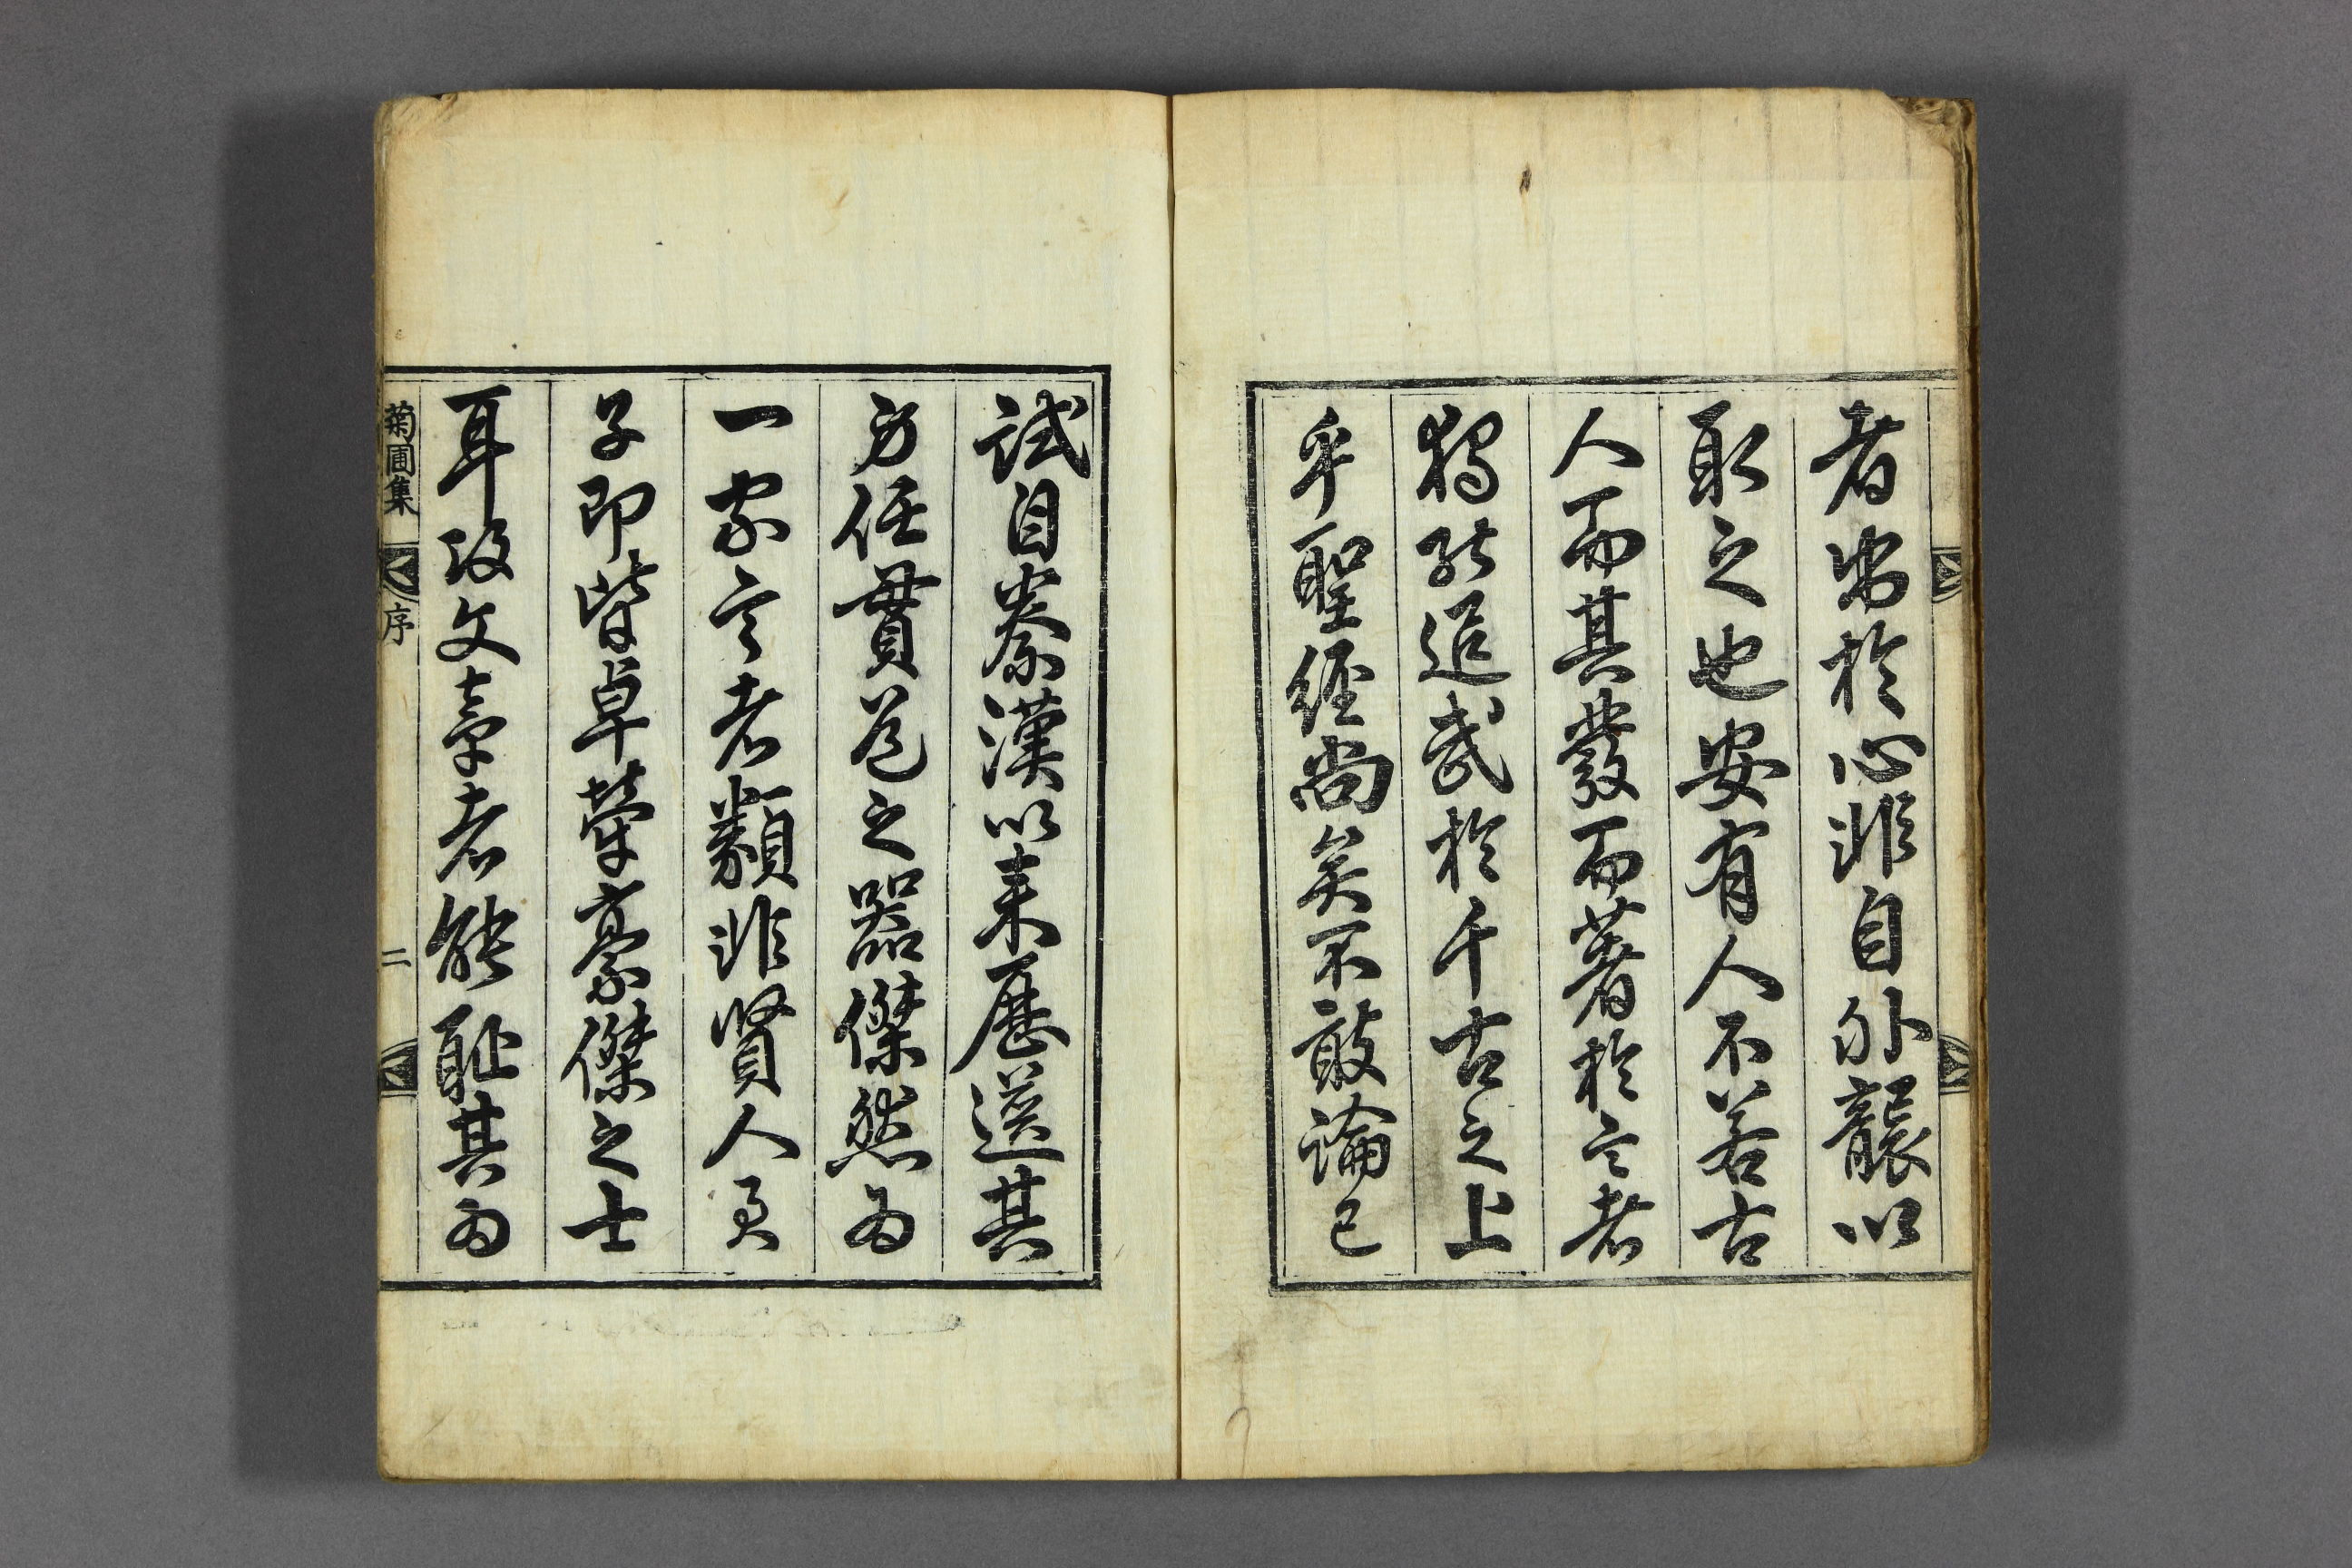 者出於心非自外襲以
取之也安有人不若古
人而其發而著於言者
獨能追武於千古之上
乎聖經尚矣不敢論已
試自秦漢以來歷選其
身任貫道之器傑然為
一家言者類非賢人君
子即皆卓犖豪傑之士
耳攻文章者能恥其為
菊圃集 序 二